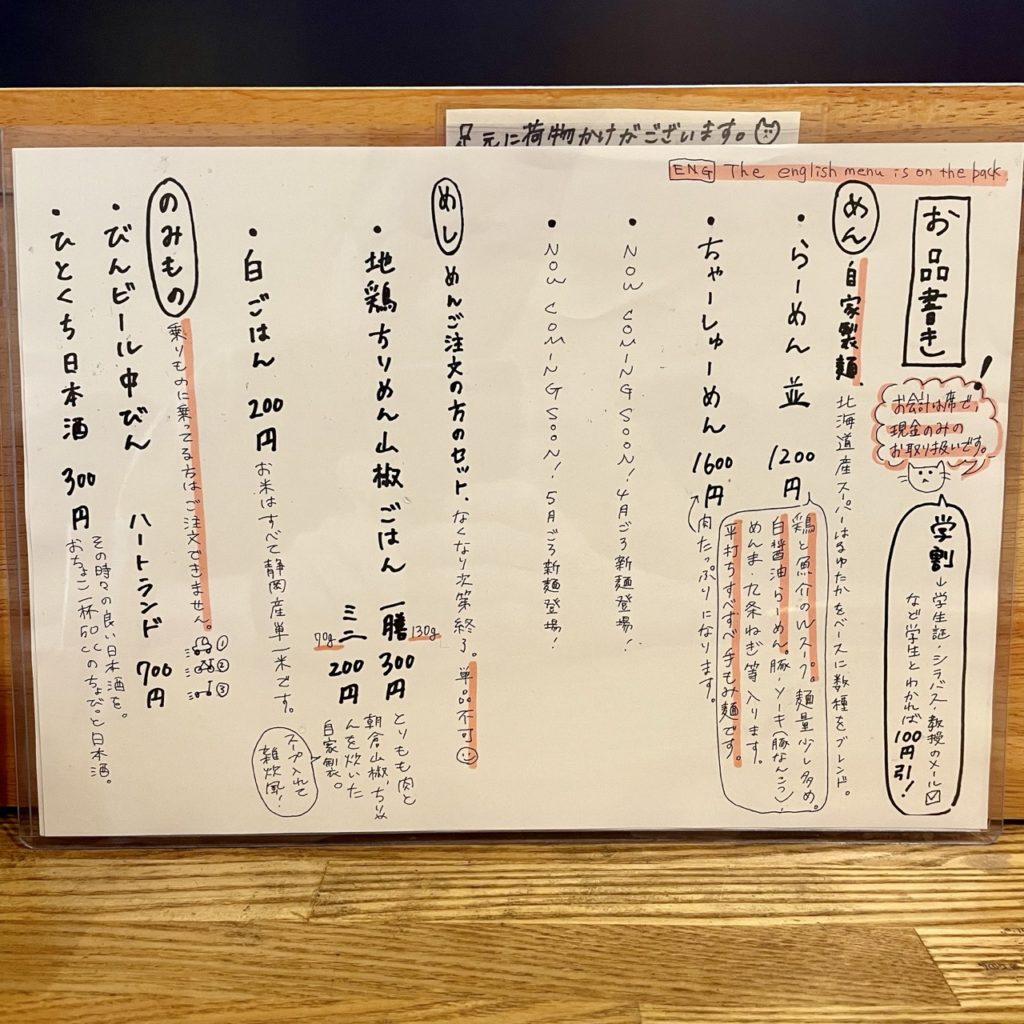 足元に荷物かけがございます。
ENG The english menu is on the back
お品書き
お会計は席で、
現金のみの
お取り扱いです。
学割
↓学生証・シラバス・教授のメール
など学生とわかれば100円引!
めん 自家製麺
北海道産スーパーはるゆたかをベースに数種をブレンド。
・らーめん 並 1200円
鶏と魚介のWスープ。麺量少し多め。
白醤油らーめん。豚・ソーキ(豚なんこつ)、
めんま・九条ねぎ等入ります。
平打ちすべすべ手もみ麺です。
・ちゃーしゅーめん 1600円
肉たっぷりになります。
・NOW COMING SOON! 4月ごろ新麺登場!
・NOW COMING SOON! 5月ごろ新麺登場!
めし めんご注文の方のセット、なくなり次第終了。単品不可
・地鶏ちりめん山椒ごはん 一膳 130g 300円
ミニ 70g 200円
とりもも肉と
朝倉山椒、ちりめ
んを炊いた
自家製。
スープ入れて
雑炊風!
・白ごはん 200円 お米はすべて静岡産単一米です。
のみもの 乗りものに乗ってる方はご注文できません。
①
②
③
・びんビール中びん ハートランド 700円
・ひとくち日本酒 300円
その時々の良い日本酒を。
おちょこ一杯50ccのちょびっと日本酒。